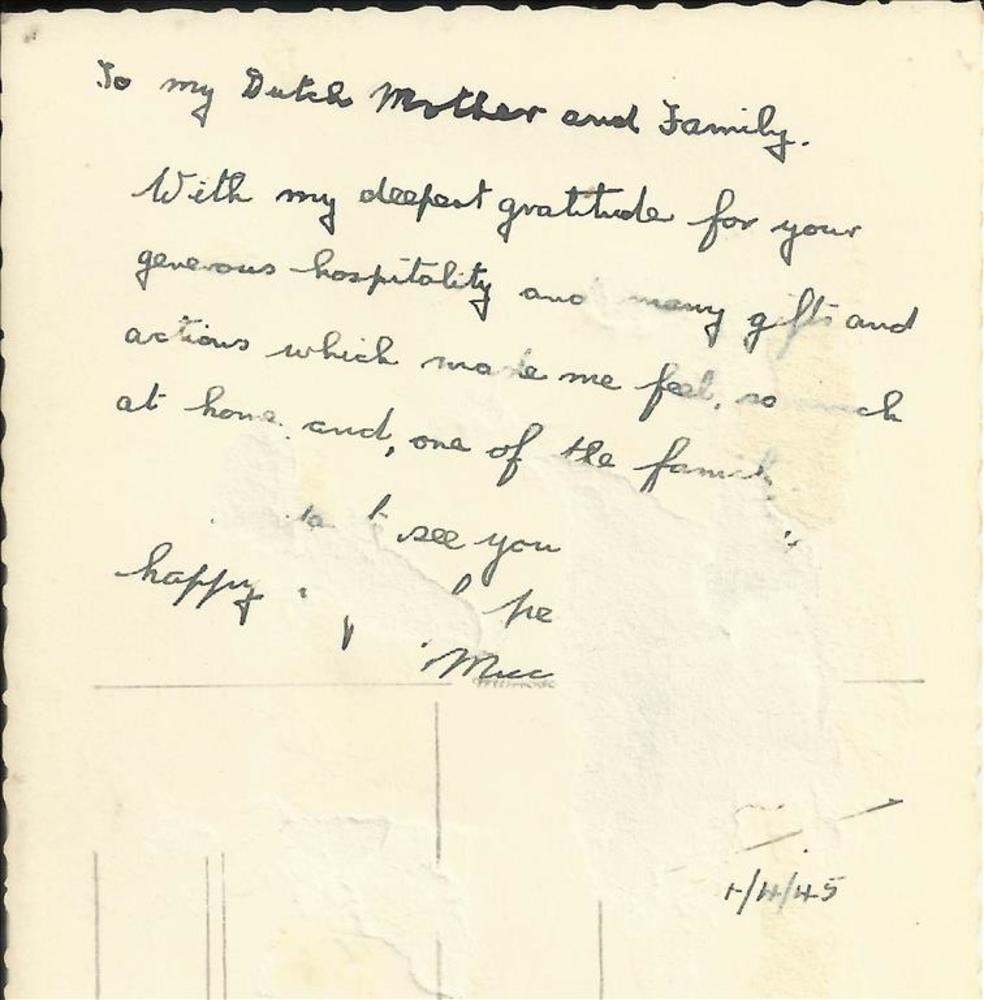 To my Dutch Mother and Family.
With my deepest gratitude for your
generous hospitality and many gifts and
actions which made me feel, so much
at home, and, one of the
see you
happy
1/4/45